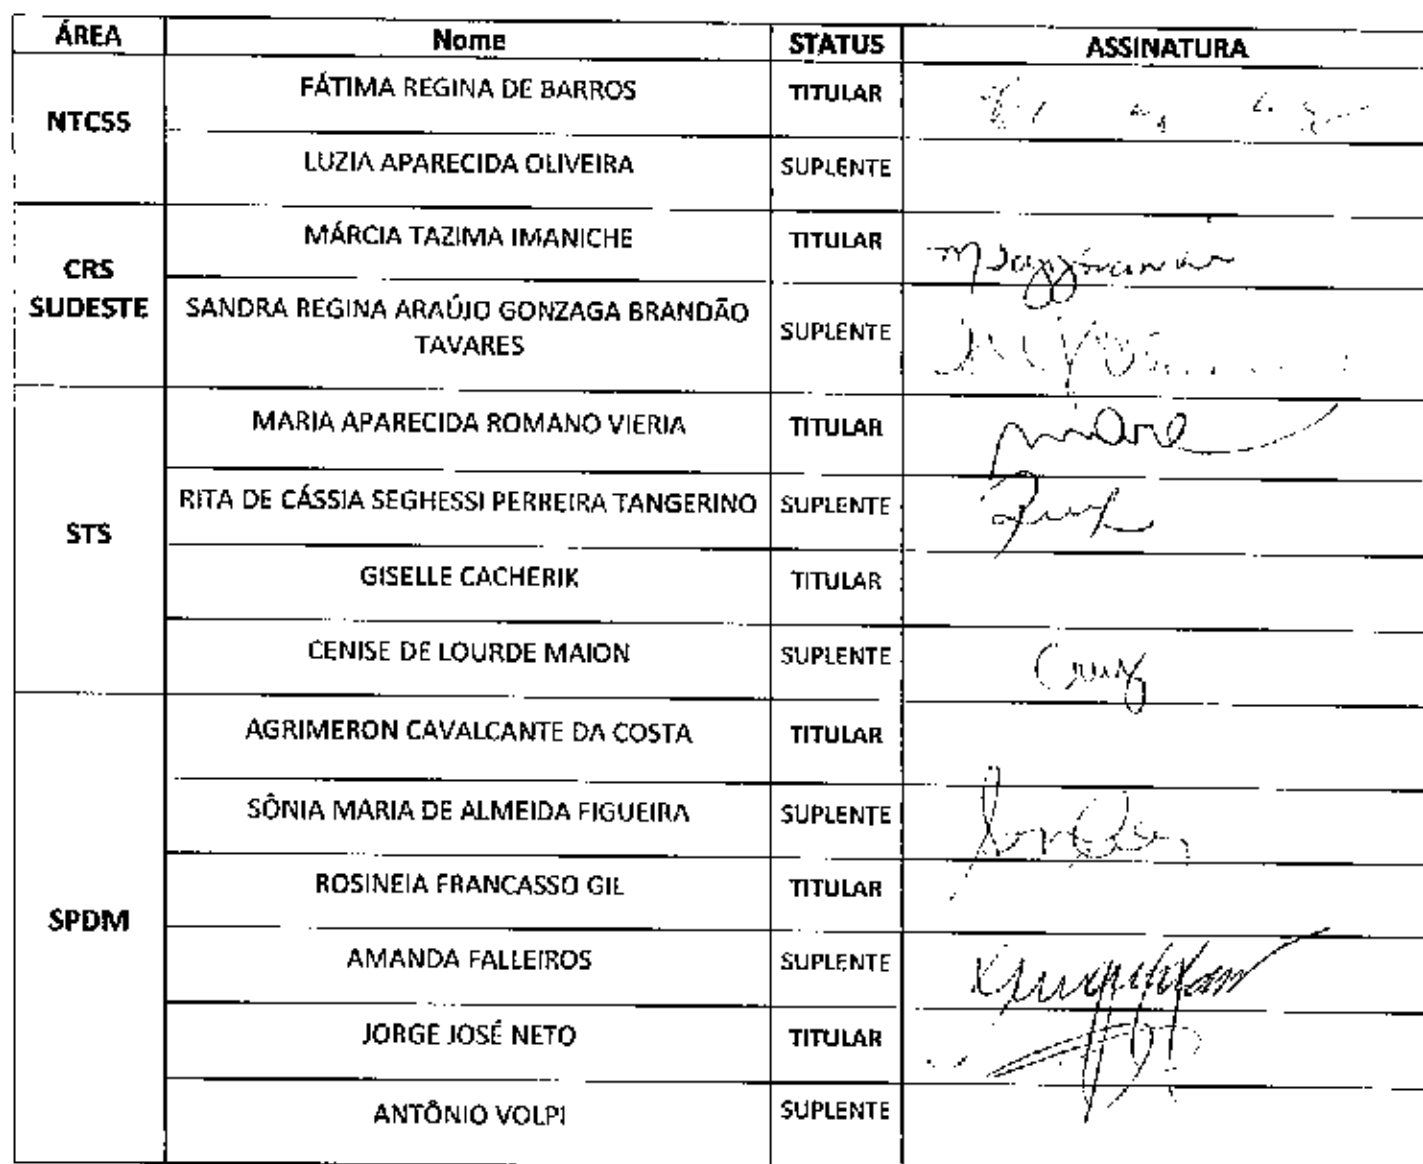 ÁREA Nome STATUS ASSINATURA
NTCSS
FÁTIMA REGINA DE BARROS TITULAR
LUZIA APARECIDA OLIVEIRA SUPLENTE
CRS
SUDESTE
MÁRCIA TAZIMA IMANICHE TITULAR
SANDRA REGINA ARAÚJO GONZAGA BRANDÃO
TAVARES
SUPLENTE
STS
MARIA APARECIDA ROMANO VIERIA TITULAR
RITA DE CÁSSIA SEGHESSI PERREIRA TANGERINO SUPLENTE
GISELLE CACHERIK TITULAR
CENISE DE LOURDE MAION SUPLENTE
SPDM
AGRIMERON CAVALCANTE DA COSTA TITULAR
SÔNIA MARIA DE ALMEIDA FIGUEIRA SUPLENTE
ROSINEIA FRANCASSO GIL TITULAR
AMANDA FALLEIROS SUPLENTE
JORGE JOSÉ NETO TITULAR
ANTÔNIO VOLPI SUPLENTE